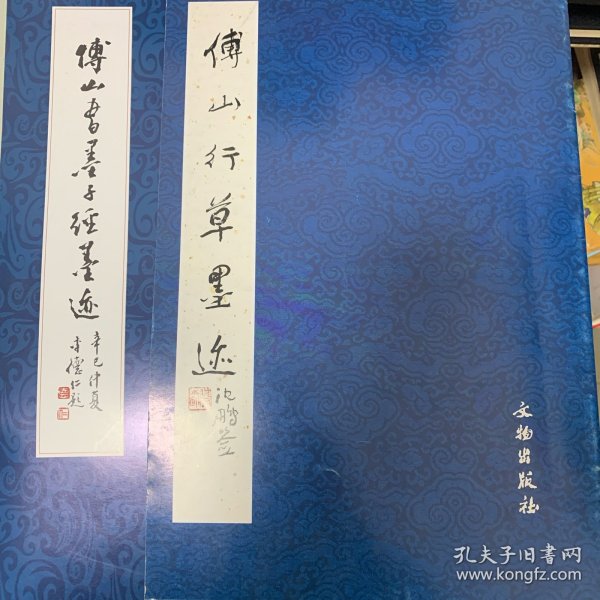 傅山书墨子经墨迹
辛巳仲夏
李德仁题
傅山行草墨迹
沈鹏签
文物出版社
孔夫子旧书网
www.kongfz.com